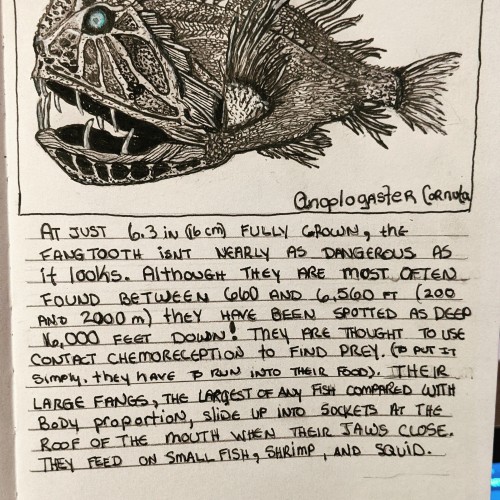 Anoplogaster Cornuta
AT JUST 6.3 in (16 cm) FULLY GROWN, the
FANGTOOTH isnt NEARLY AS DANGEROUS AS
it looks. Although THEY ARE MOST OFTEN
FOUND BETWEEN 660 AND 6,560 FT (200
AND 2000 m) they HAVE BEEN SPOTTED AS DEEP
16,000 FEET DOWN! THEY ARE THOUGHT TO USE
CONTACT CHEMORECEPTION to FIND PREY. (TO PUT IT
Simply, they HAVE TO RUN INTO THEIR FOOD). THEIR
LARGE FANGS, THE LARGEST OF ANY FISH COMPARED WITH
BODY proportion, SLIDE UP INTO SOCKETS AT THE
ROOF OF THE MOUTH WHEN THEIR JAWS CLOSE.
THEY FEED ON SMALL FISH, SHRIMP, AND SQUID.